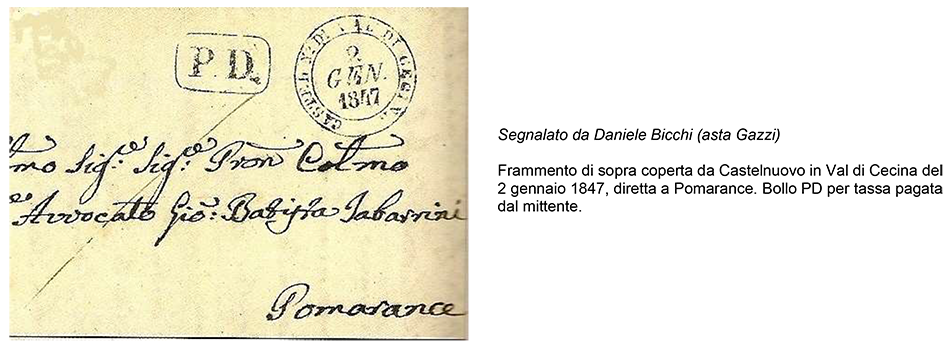 P. D.
CASTEL Nº. DI VAL DI CECINA
2
GEN.
1847
mo Sig.e Sig.e Pron Colmo
Avvocato Gio: Batista Tabarrini
Pomarance
Segnalato da Daniele Bicchi (asta Gazzi)
Frammento di sopra coperta da Castelnuovo in Val di Cecina del
2 gennaio 1847, diretta a Pomarance. Bollo PD per tassa pagata
dal mittente.